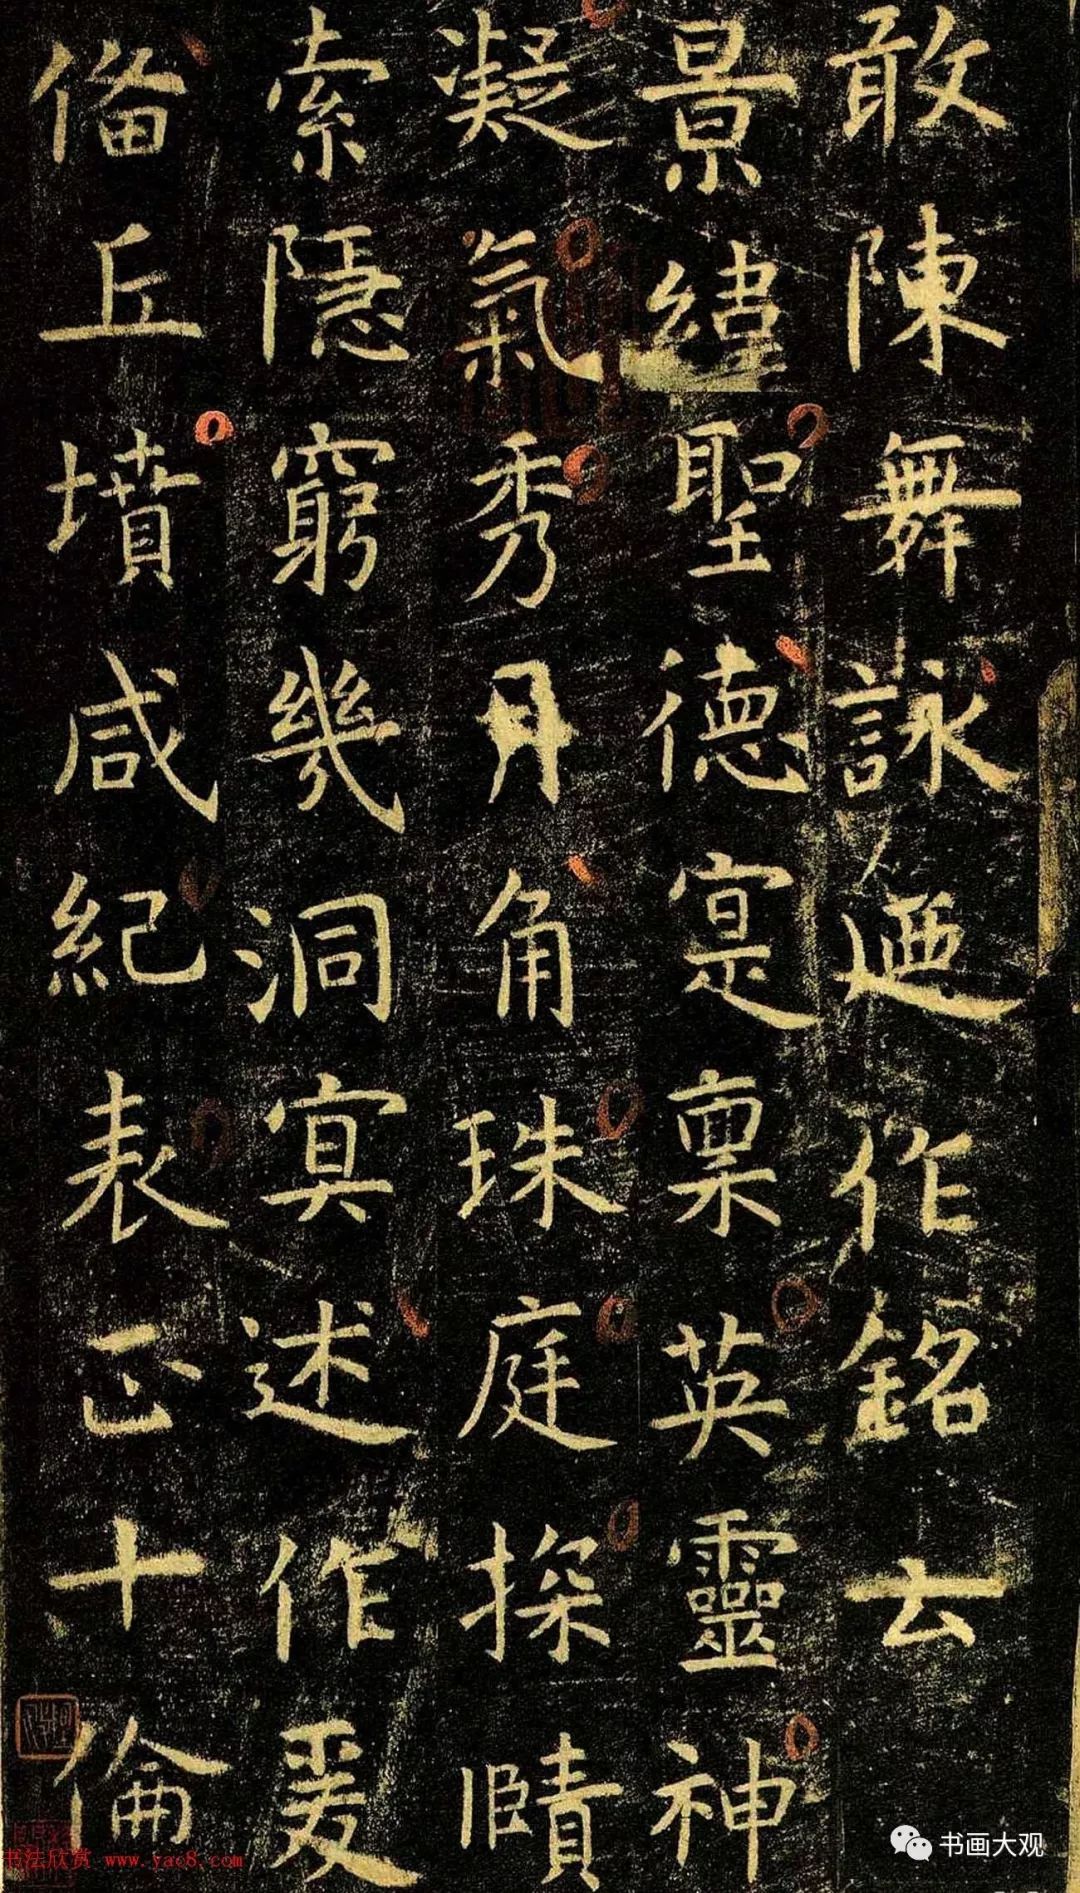 敢陳舞詠廼作銘云
景緯聖德寔稟英靈神
凝氣秀月角珠庭探賾
索隱窮幾洞寘述作爰
俻丘墳咸紀表正十倫
书法欣赏 www.yac8.com
书画大观